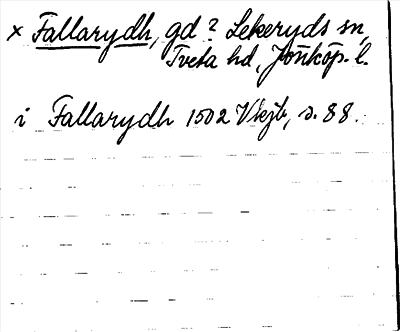 × Fallarydh, gd? Lekeryds sn,
Tveta hd, Jönköp. l.
i Fallarydh 1502 Vkjb, s. 88.